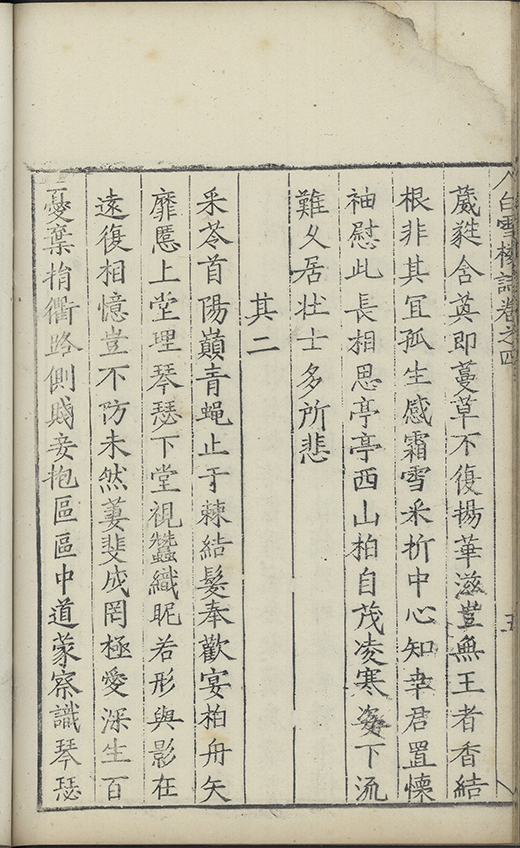 白雪樓詩卷之四 五
葳蕤含英即蔓草不復揚華滋豈無王者香結
根非其冝孤生感霜雪采折中心知幸君置懷
袖慰此長相思亭亭西山柏自茂凌寒姿下流
難久居壯士多所悲
其二
采苓首陽巔青蠅止于棘結髮奉歡宴柏舟矢
靡慝上堂理琴瑟下堂視蠶織昵若形與影在
遠復相憶豈不防未然萋斐成罔極愛深生百
憂棄捐衢路側賤妾抱區區中道蒙察識琴瑟